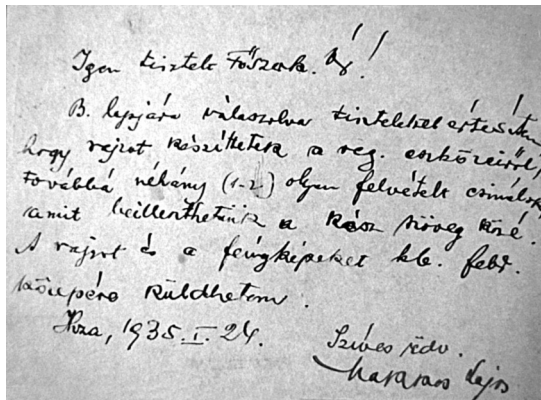 Igen tisztelt Főszerk. Úr!
B. lapjára válaszolva tisztelettel értesítem
hogy rajzot készíttetek a reg. eszközeiről,
továbbá néhány (1-2) olyan felvételt csinálok
amit beilleszthetünk a kész szöveg közé.
A rajzot és a fényképeket kb. febr.
közepére küldhetem.
1935. I. 24.
Szíves üdv.
Lajos